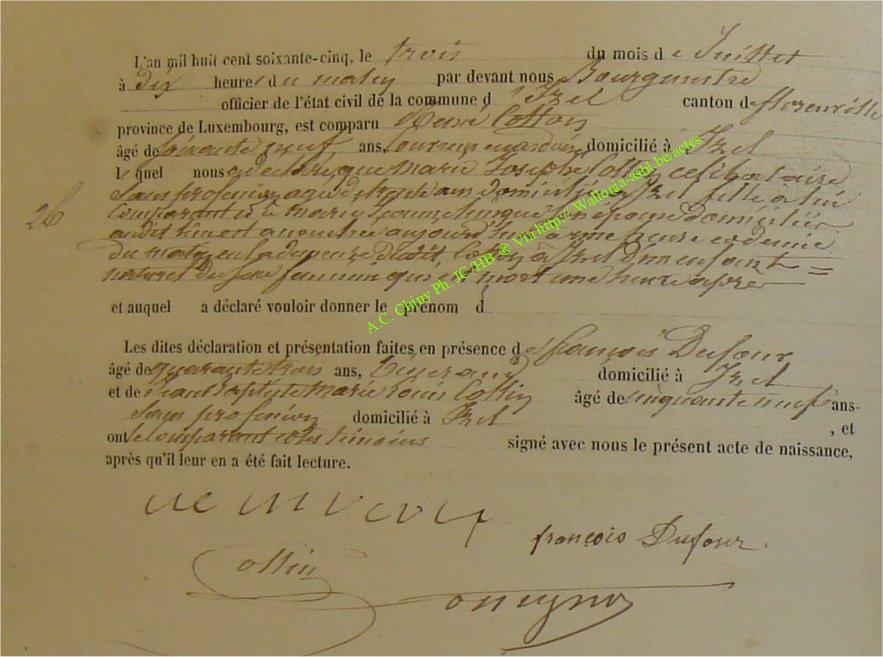 L'an mil huit cent soixante-cinq, le trois du mois de Juillet
à dix heures du matin par devant nous Bourgmestre
officier de l'état civil de la commune d'Izel canton de florenville
province de Luxembourg, est comparu Collin
âgé de soixante neuf ans, domicilié à Izel
lequel nous a déclaré que marie Josephe Collin celibataire
sans profession agée de trente ans domiciliée à Izel fille à lui
comparant et à marie Jeanne son epouse domiciliée
audit lieu est accouchée aujourd'hui à une heure et demie
du matin en la demeure dudit Collin à Izel d'un enfant =
naturel du sexe feminin qui est mort une heure apres
et auquel a déclaré vouloir donner le prénom d
Les dites déclaration et présentation faites en présence de françois Dufour
âgé de quarante trois ans, Tisserand domicilié à Izel
et de Jean Baptiste marie louis Collin âgé de cinquante neuf ans.
Sans profession domicilié à Izel , et
ont le comparant et les témoins signé avec nous le présent acte de naissance,
après qu'il leur en a été fait lecture.
26
A.C. Chiny Ph. JC/HB ® Via http://Wallonia-asbl.be/actes
françois Dufour.
Collin